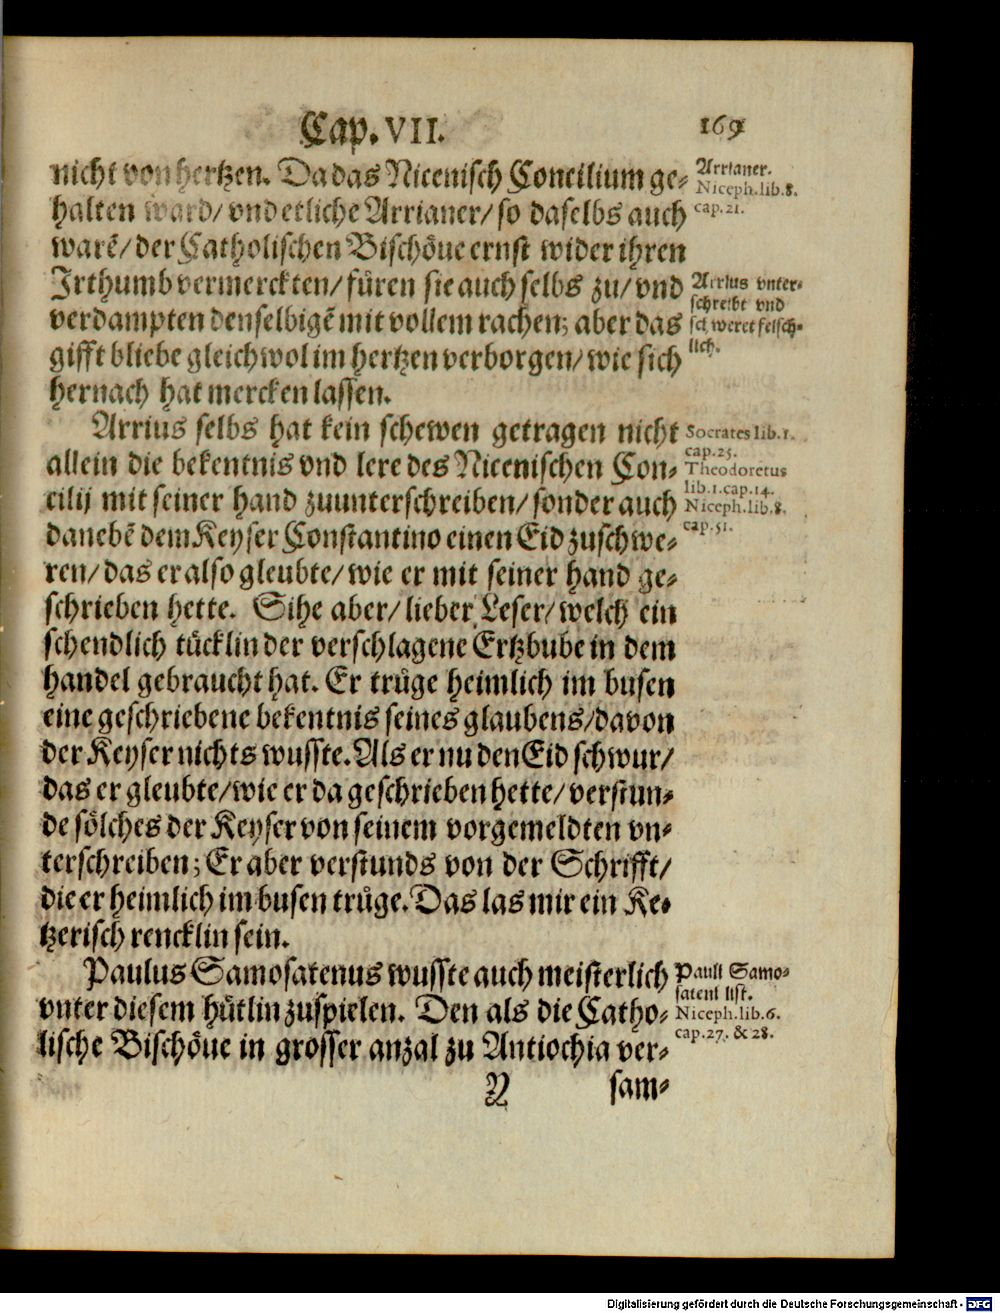 Cap. VII. 169
nicht von hertzen. Da das Nicenisch Concilium ge-
halten ward/ vnd etliche Arrianer/ so daselbs auch
warẽ/ der Catholischen Bischöue ernst wider ihren
Irthumb vermerckten/ füren sie auch selbs zu/ vnd
verdampten denselbigẽ mit vollem rachen; aber das
gifft bliebe gleichwol im hertzen verborgen/ wie sich
hernach hat mercken lassen.
Arrianer.
Niceph. lib. 8.
cap. 21.
Arrius vnter-
schreibt vnd
schweret felsch-
lich.
Arrius selbs hat kein schewen getragen nicht
allein die bekentnis vnd lere des Nicenischen Con-
cilij mit seiner hand zuunterschreiben/ sonder auch
danebẽ dem Keyser Constantino einen Eid zuschwe-
ren/ das er also gleubte/ wie er mit seiner hand ge-
schrieben hette. Sihe aber/ lieber Leser/ welch ein
schendlich tücklin der verschlagene Ertzbube in dem
handel gebraucht hat. Er trůge heimlich im busen
eine geschriebene bekentnis seines glaubens/ davon
der Keyser nichts wusste. Als er nu den Eid schwur/
das er gleubte/ wie er da geschrieben hette/ verstun-
de sölches der Keyser von seinem vorgemeldten vn-
terschreiben; Er aber verstunds von der Schrifft/
die er heimlich im busen trůge. Das las mir ein Ke-
tzerisch rencklin sein.
Socrates lib. 1.
cap. 25.
Theodoretus
lib. 1. cap. 14.
Niceph. lib. 8.
cap. 51.
Paulus Samosatenus wusste auch meisterlich
vnter diesem hütlin zuspielen. Den als die Catho-
lische Bischöue in grosser anzal zu Antiochia ver-
Pauli Samo-
sateni list.
Niceph. lib. 6.
cap. 27. & 28.
Y sam-
Digitalisierung gefördert durch die Deutsche Forschungsgemeinschaft - DFG